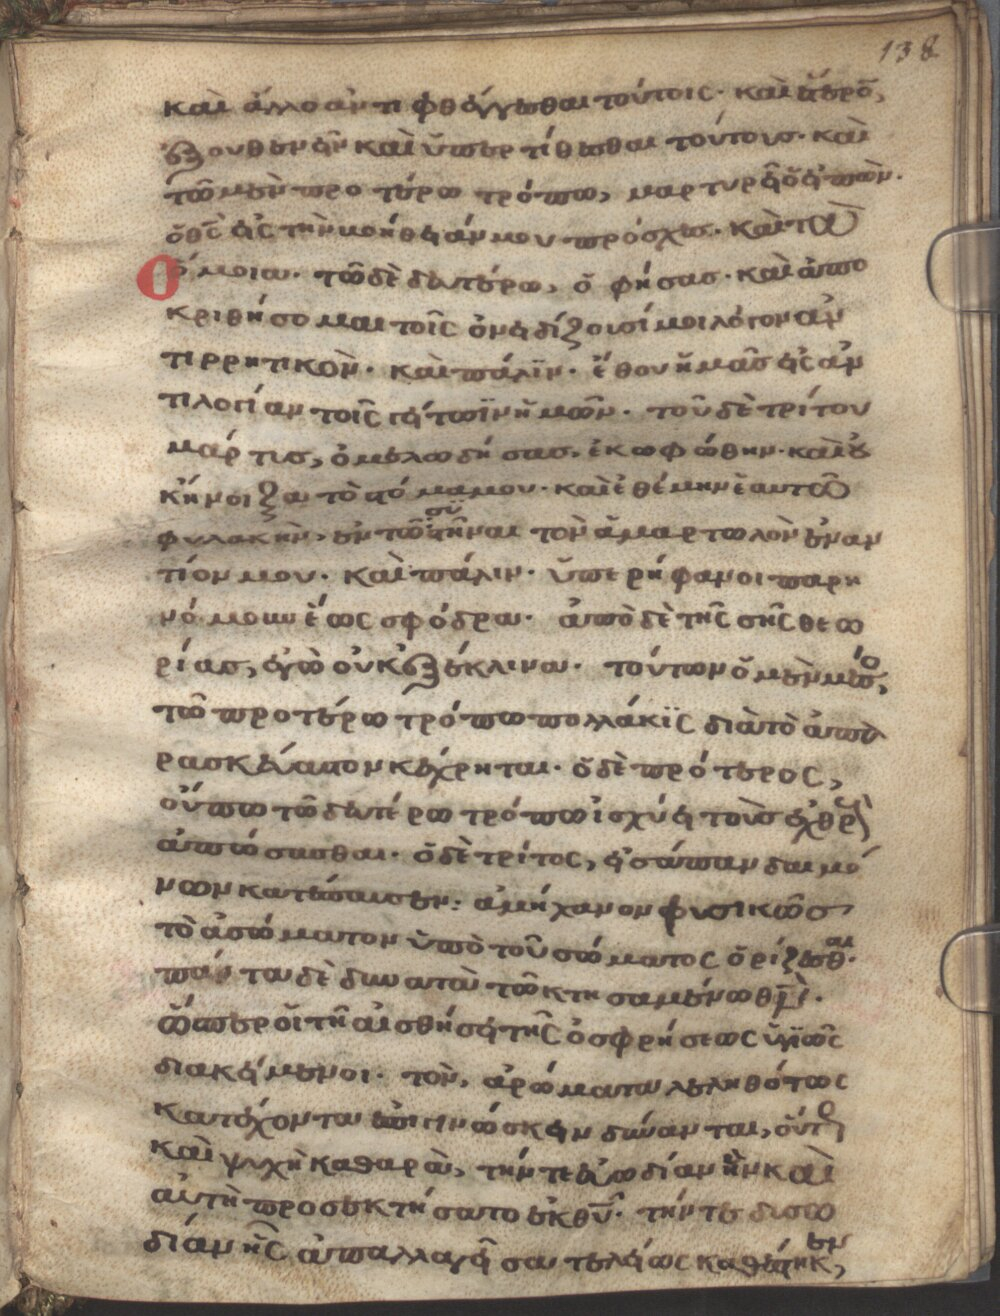 138
καὶ ἄλλο ἀντιφθέγγεσθαι τούτοις· καὶ ἕτερον,
ἐξουθενεῖν καὶ ὑπερτίθεσθαι τούτους· καὶ
τῶ μὲν προτέρω τρόπω, μαρτυρεῖ ὁ εἰπὼν·
ὁ θς εἰς τὴν βοήθειάν μου πρόσχες· καὶ τὰ
ὅμοια· τῶ δὲ δευτέρω, ὁ φήσας· καὶ ἀπο
κριθήσομαι τοῖς ὀνειδίζουσί μοι λόγον ἀν
τιρρητικὸν· καὶ πάλιν· ἔθου ἡμᾶς εἰς ἀν
τιλογίαν τοῖς γείτωσιν ἡμῶν· τοῦ δὲ τρίτου
μάρτυς, ὁ μελωδήσας· ἐκωφώθην· καὶ οὐ
κ ἤνοιξα τὸ στόμα μου· καὶ ἐθέμην ἐαυτῶ
φυλακὴν, ἐν τῶ συστῆναι τὸν ἁμαρτωλὸν ἐναν
τίον μου· καὶ πάλιν· ὑπερήφανοι παρη
νόμουν ἕως σφόδρα· ἀπὸ δὲ τῆς σῆς θεω
ρίας, ἐγὼ οὐκ ἐξέκλινα· τούτων ὁ μὲν μέσος,
τῶ προτέρω τρόπω πολλάκις διὰ τὸ ἀπα
ράσκεύαστον κέχρηται· ὁ δὲ πρότερος,
οὔπω τῶ δευτέρω τρόπω ἰσχύει τοὺς ἐχθροὺς
ἀπώσασθαι· ὁ δὲ τρίτος, εἰσάπαν δαιμό
νων κατέπτυσεν: ἀμήχανον φυσικῶς
τὸ ἀσώματον ὑπὸ τοῦ σώματος ὁρίζεσθαι·
πάντα δὲ δυνατὰ τῶ κτησαμένω θν·
ὥσπερ οἱ τῆ αἰσθήσει τῆς ὀσφρήσεως ὑγιῶς
διακείμενοι· τὸν, ἀρώματα λεληθότως
κατέχοντα ἐπιγινώσκειν δύνανται, οὕτω
καὶ ψυχὴ καθαρὰ, τήν τε εὐωδίαν ἣν καὶ
αὐτὴ προσεκτήσατο ἐκ θυ· τήν τε δυσω
δίαν ἧς ἀπαλλαγεῖσα τελείως καθέστηκεν,